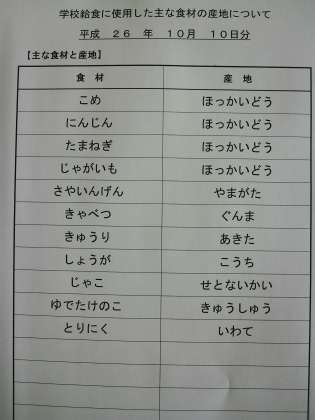 学校給食に使用した主な食材の産地について
平成 26 年 10月 10日分
【主な食材と産地】
食材 産地
こめ ほっかいどう
にんじん ほっかいどう
たまねぎ ほっかいどう
じゃがいも ほっかいどう
さやいんげん やまがた
きゃべつ ぐんま
きゅうり あきた
しょうが こうち
じゃこ せとないかい
ゆでたけのこ きゅうしゅう
とりにく いわて